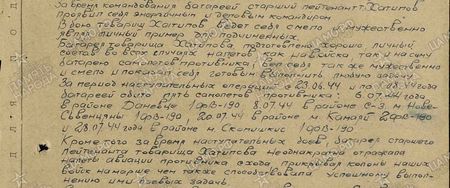 За время командования батареей старший лейтенант Хатипов
проявил себя энергичным и деловым командиром
В бою товарищ Хатипов ведет себя смело и мужественно
являя личный пример для подчиненных.
Батарея товарища Хатипова подготовлена хорошо личный
состав во всех случаях налетов как на войска так и на саму
батарею самолетов противника, вел себя так же мужественно
и смело и показал себя готовым выполнить любую задачу.
За период наступательных операций с 23.06.44 и по 44 года
батареей сбито пять самолетов противника: 5.07.44 года
в районе Даневце 1 ФВ-190 8.07.44 в районе С-З. м. Нове-
Свенцяны 1 ФВ-190, 20.07.44 в районе м. Камай 2 ФВ-190
и 28.07.44 в районе м. Скопишкис 1 ФВ-190
Кроме того за время наступательных боев, батарея старшего
лейтенанта товарища Хатипова неоднократно отражала
налеты авиации противника с хода прикрывая колонны наших
войск на марше чем также способствовала успешному выпол-
нению ими боевых задач.